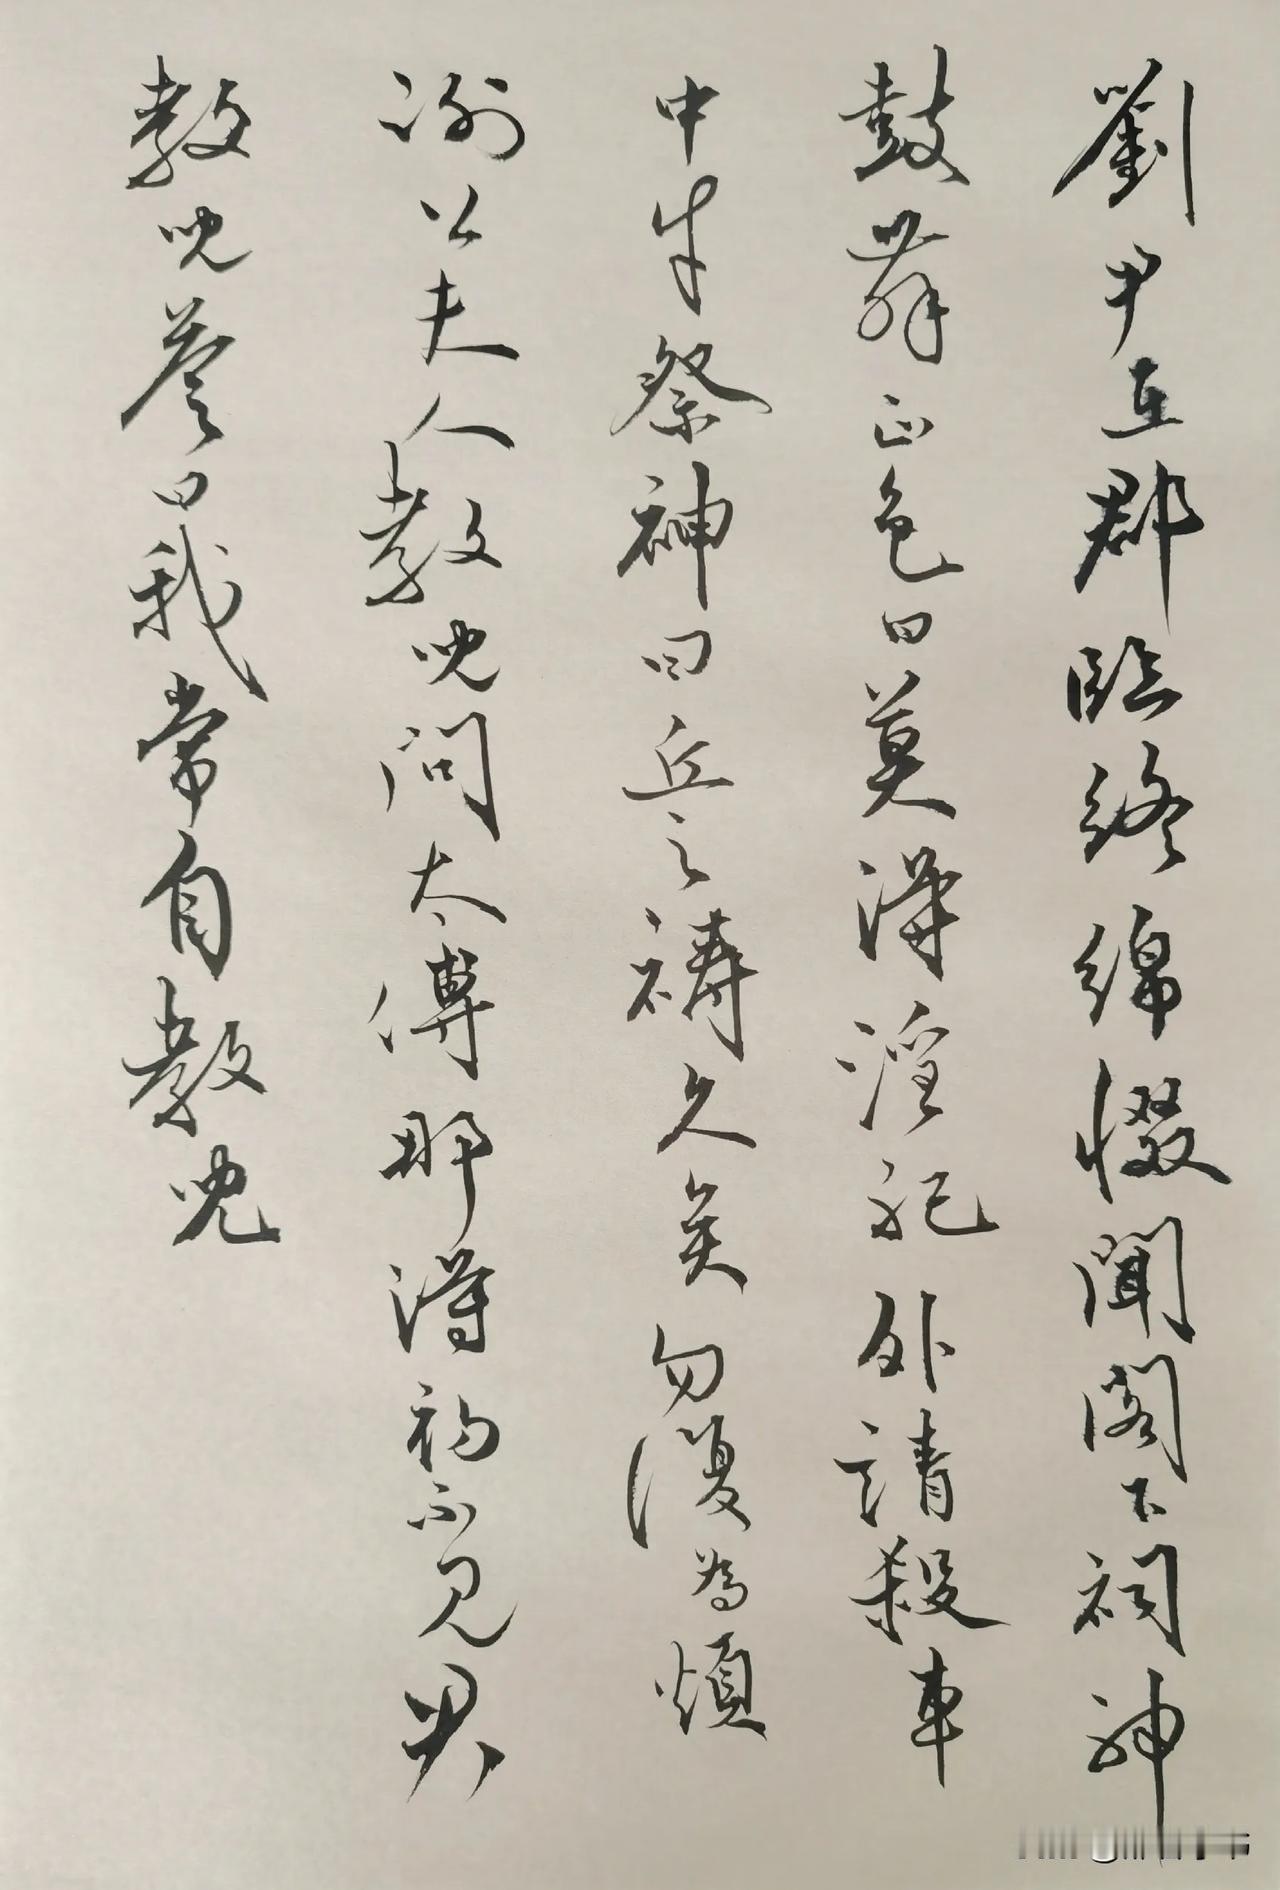 劉尹在郡臨終綿惙聞閣下祠神
鼓舞正色曰莫得淫祀外請殺車
中牛祭神曰丘之禱久矣勿復為煩
謝公夫人教兒問太傅那得初不見君
教兒答曰我常自教兒